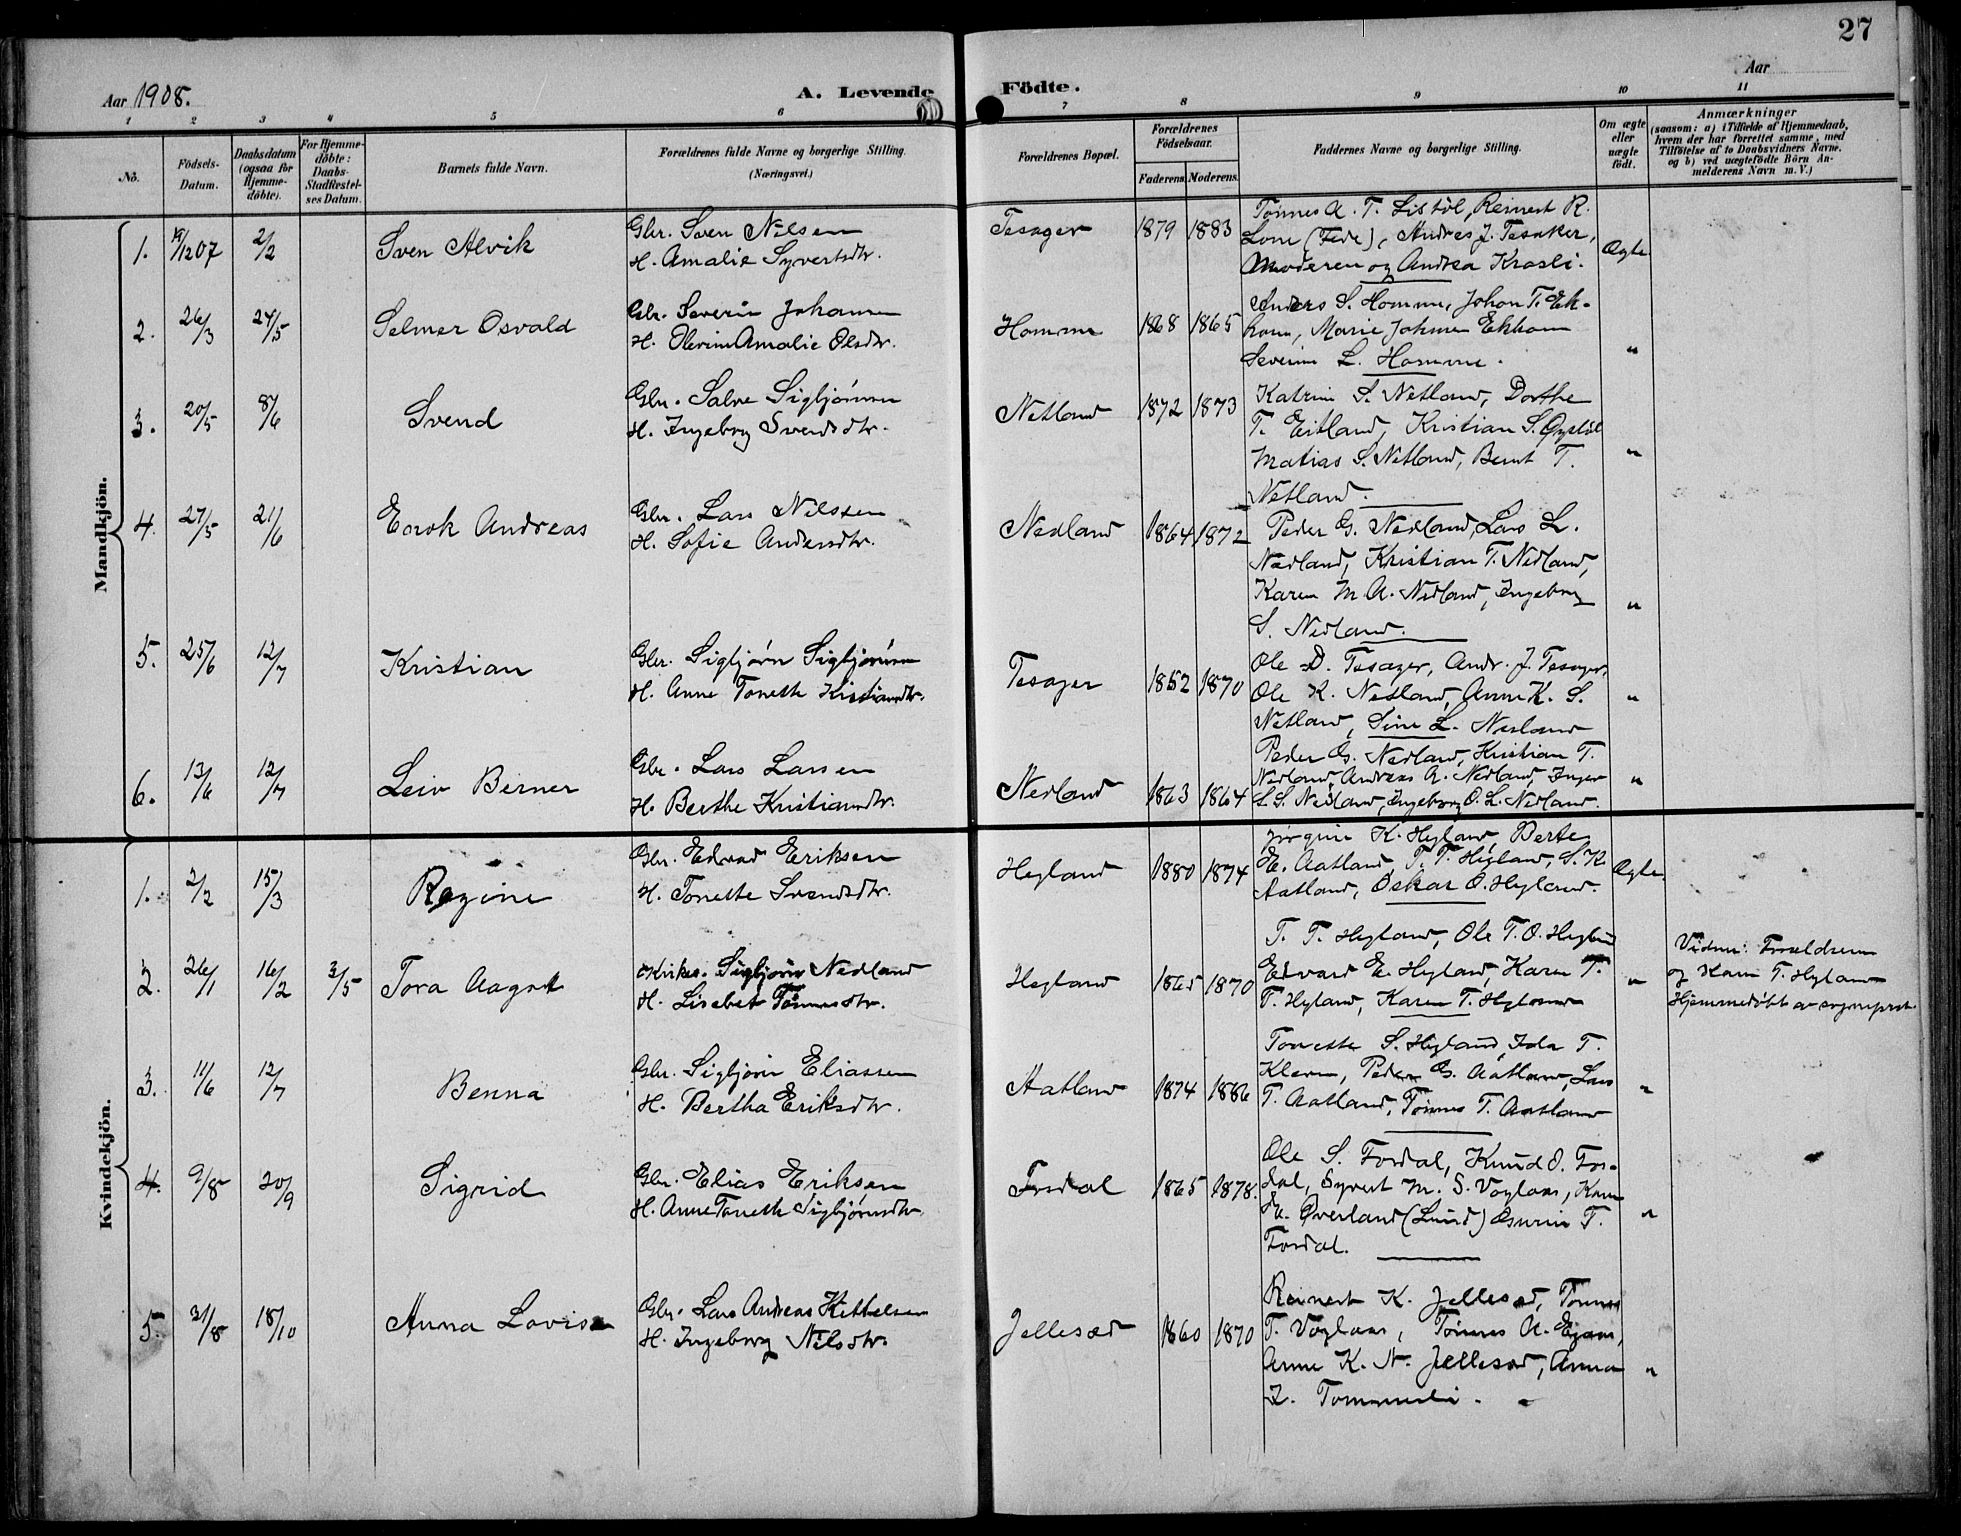 27
Aar 1908.
A. Levende Födte.
Aar
1 2 3 4 5 6 7 8 9 10 11
Nò.
Födsels-
Datum.
Daabsdatum
(ogsaa for
Hjemme-
døbte).
For Hjemme-
døbte:
Daabs-
Stadfæstel-
ses Datum.
Barnets fulde Navn.
Forældrenes fulde Navne og borgerlige Stilling.
(Næringsvei.)
Forældrenes Bopæl.
Forældrenes
Födselsaar.
Faderens. Moderens.
Faddernes Navne og borgerlige Stilling.
Om ægte
eller
uægte
födt.
Anmærkninger
(saasom: a) i Tilfælde af Hjemmedaab,
hvem der har forrettet samme, med
Tilföielse af to Daabsvidners Navne.
og b) ved uægtefödte Börn An-
melderens Navn m. V.)
Mandkjön.
1. 19/12 07 2/2 Sven Alvik
Gbr. Sven Nilsen
H. Amalie Syvertsdtr.
Tesager 1879 1883
Tönnes A. T. Listöl, Reinert R.
Lone (Fede), Andres J. Tesaker,
Moderen og Andrea Krosli.
Ægte
2. 26/3 24/5 Selmer Osvald
Gbr. Severin Johansen
H. Olevine Amalie Olsdtr.
Homme 1868 1865
Anders S. Homme, Johan T. Ek-
hom, Marie Johnsen Ekhom
Severine L. Homme.
"
3. 20/5 8/6 Svend
Gbr. Salve Sigbjörnsen
H. Ingeborg Svendsdtr.
Netland 1872 1873
Katrine S. Netland, Dorthe
T. Eitland, Kristian S.
Matias S. Netland, Bernt T.
Netland.
"
4. 27/5 21/6 Enok Andreas
Gbr. Lars Nilssen
H. Sofie Andersdtr.
Nedland 1864 1872
Peder G. Nedland, Lars L.
Nedland, Kristian T. Nedland,
Karen M. A. Nedland, Ingeborg
S. Nedland.
"
5. 25/6 12/7 Kristian
Gbr. Sigbjörn Sigbjörnsen
H. Anne Toneth Kristiansdtr.
Tesager 1852 1870
Ole D. Tesager, Andr. J. Tesager,
Ole K. Netland, Anne K. S.
Netland, Sine L. Nedland
"
6. 13/6 12/7 Leiv Berner
Gbr. Lars Larsen
H. Berthe Kristiansdtr.
Nedland 1863 1864
Peder G. Nedland, Kristian T.
Nedland, Andreas A. Nedland, Inger
L. S. Nedland, Ingeborg O. L. Nedland.
"
Kvindekjön.
1. 2/2 15/3 Regine
Gbr. Edvad Eriksen
H. Tonette Svendsdtr.
Hegland 1880 1874
Jörgine K. Hegland, Berte
E. Aatland, T. T. Hegland, S. K.
Aatland, Oskar O. Hegland.
Ægte
2. 26/1 16/2 3/5 Tora Aagot
Kirkes. Sigbjörn Nedland
H. Lisabet Tönnesdtr.
Hegland 1865 1870
T. T. Hegland, Ole T. O. Hegland
Edvard E. Hegland, Karen T.
T. Hegland, Karen T. Hegland
"
Vidner: Forældrene
og Karen T. Hegland
Hjemmedöbt av sogneprest.
3. 11/6 12/7 Benna
Gbr. Sigbjörn Eliassen
H. Bertha Eriksdtr.
Aatland 1874 1886
Tonette S. Hegland, Ida T.
Kleven, Peder G. Aatland, Lars
T. Aatland, Tönnes T. Aatland
"
4. 9/8 20/9 Sigrid
Gbr. Elias Eriksen
H. Anne Toneth Sigbjörnsdtr.
Fosdal 1865 1878.
Ole S. Fosdal, Knud O. Fos-
dal, Syvert M. S. Voglaas, Karen
Overland (Lund) T.
Fosdal.
"
5. 31/8 18/10 Anna Lovise
Gbr. Lars Andreas Kittelsen
H. Ingeborg Nilsdtr.
Jellesad 1860 1870
Reinert K. Jellesad, Tönnes
T. Voglaas, Tönnes A.
Anne K. N. Jellesad, Anna
L. Tommerli.
"